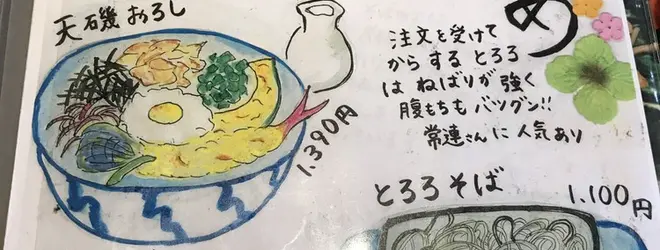 天磯おろし
1.390円
め
注文を受けて
からするとろろ
はねばりが強く
腹もちもバツグン!!
常連さんに人気あり
とろろそば
1.100円